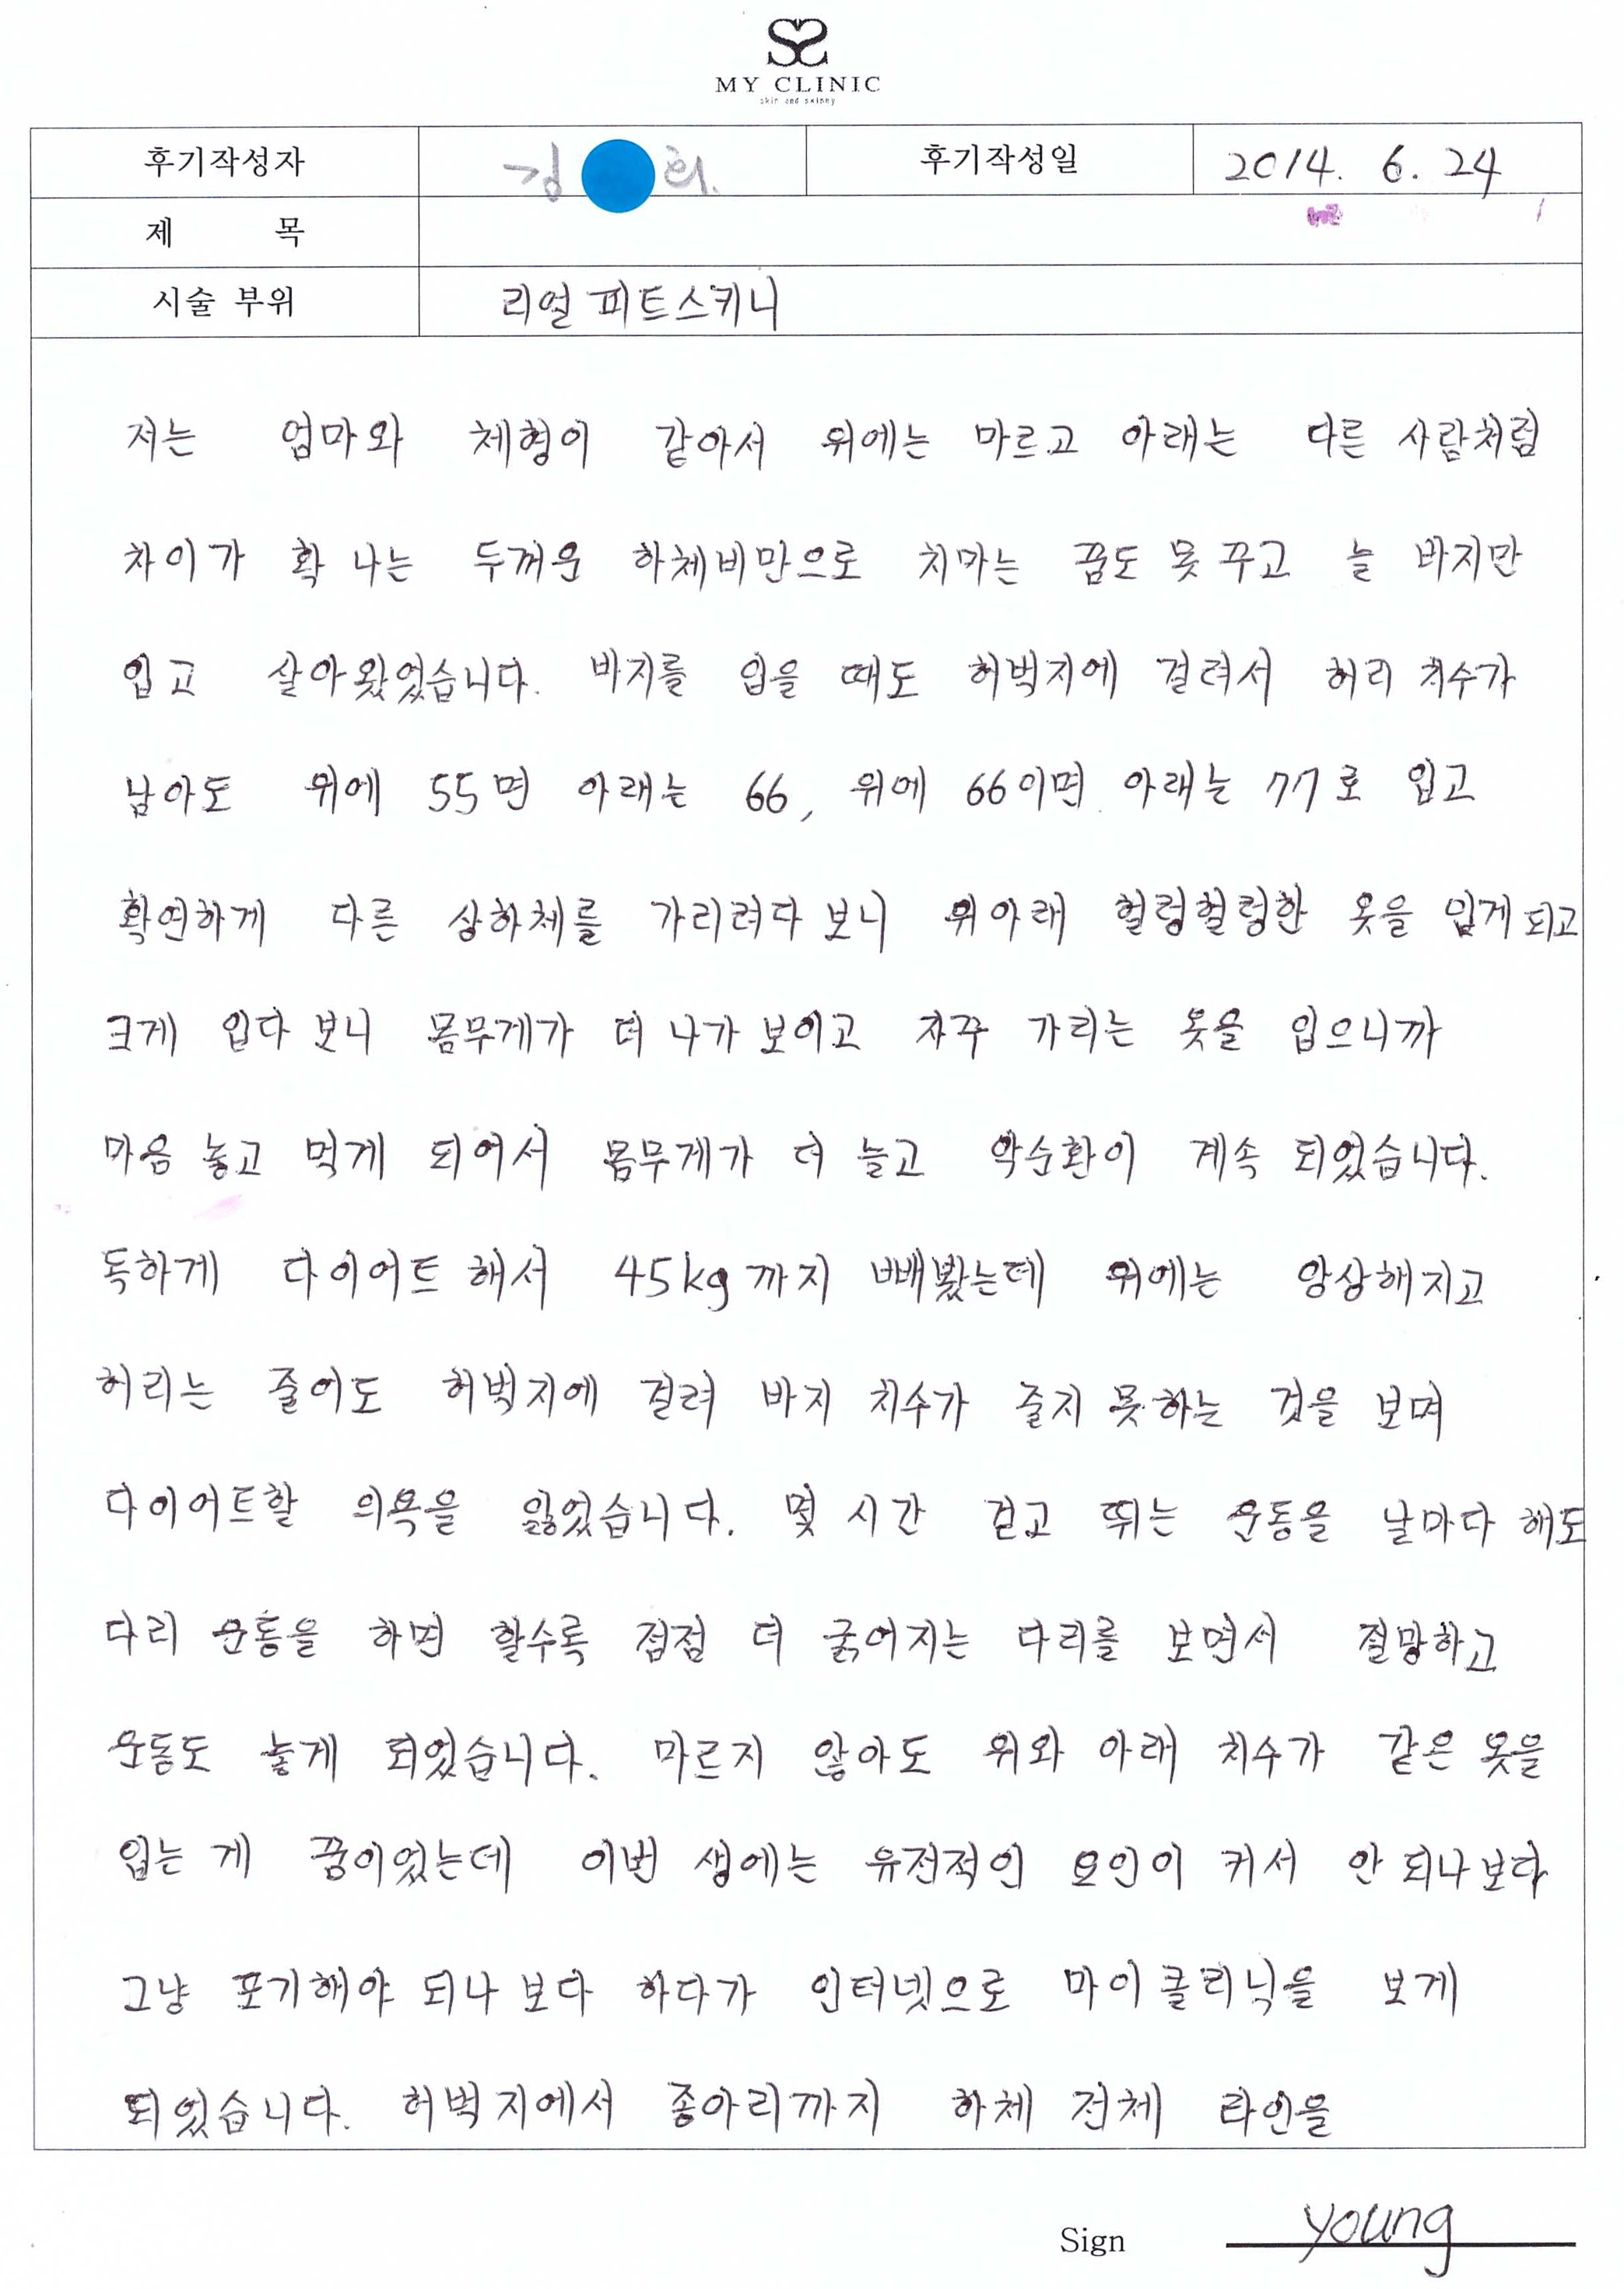 MY CLINIC
skin and skinny
후기작성자 김 희. 후기작성일 2014. 6. 24
제 목
시술 부위 리얼 피트스키니
저는 엄마와 체형이 같아서 위에는 마르고 아래는 다른 사람처럼
차이가 확 나는 두꺼운 하체비만으로 치마는 꿈도 못 꾸고 늘 바지만
입고 살아왔었습니다. 바지를 입을 때도 허벅지에 걸려서 허리 치수가
남아도 위에 55면 아래는 66, 위에 66이면 아래는 77로 입고
확연하게 다른 상하체를 가리려다 보니 위아래 헐렁헐렁한 옷을 입게 되고
크게 입다 보니 몸무게가 더 나가 보이고 자꾸 가리는 옷을 입으니까
마음 놓고 먹게 되어서 몸무게가 더 늘고 악순환이 계속 되었습니다.
독하게 다이어트 해서 45kg까지 빼봤는데 위에는 앙상해지고
허리는 줄어도 허벅지에 걸려 바지 치수가 줄지 못하는 것을 보며
다이어트할 의욕을 잃었습니다. 몇 시간 걷고 뛰는 운동을 날마다 해도
다리 운동을 하면 할수록 점점 더 굵어지는 다리를 보면서 절망하고
운동도 놓게 되었습니다. 마르지 않아도 위와 아래 치수가 같은 옷을
입는 게 꿈이었는데 이번 생에는 유전적인 요인이 커서 안 되나보다
그냥 포기해야 되나 보다 하다가 인터넷으로 마이클리닉을 보게
되었습니다. 허벅지에서 종아리까지 하체 전체 라인을
Sign young